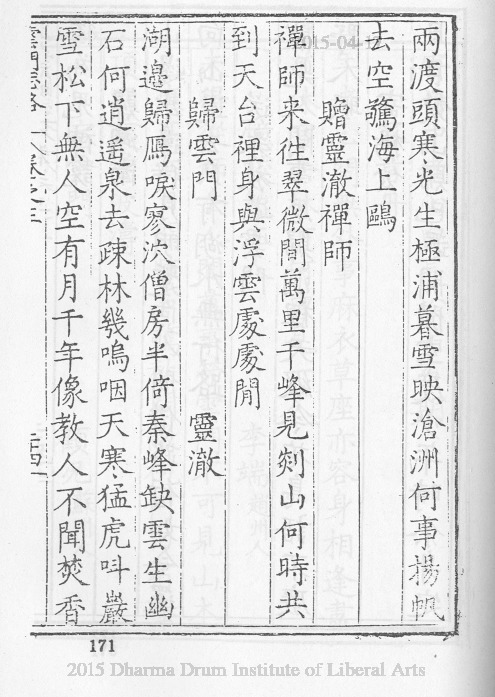 兩渡頭寒光生極浦暮雪映滄洲何事揚帆
去空驚海上鷗
贈靈澈禪師
禪師来徃翠微間萬里千峰見剡山何時共
到天台裡身與浮雲處處閒
歸雲門
靈澈
湖邉歸鴈唳寥泬僧房半倚秦峰缺雲生幽
石何逍遥泉去疎林幾嗚咽天寒猛虎呌巖
雪松下無人空有月千年像教人不聞焚香
171
2015 Dharma Drum Institute of Liberal Arts